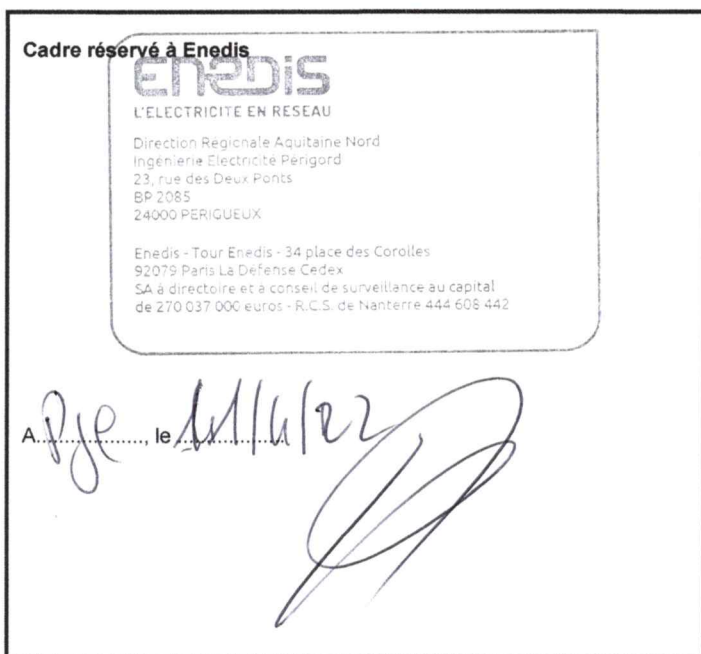 Cadre réservé à Enedis
enedis
L'ELECTRICITE EN RESEAU
Direction Régionale Aquitaine Nord
Ingénierie Electricité Périgord
23, rue des Deux Ponts
BP 2085
24000 PERIGUEUX
Enedis - Tour Enedis - 34 place des Corolles
92079 Paris La Défense Cedex
SA à directoire et à conseil de surveillance au capital
de 270 037 000 euros - R.C.S. de Nanterre 444 608 442
A..................., le